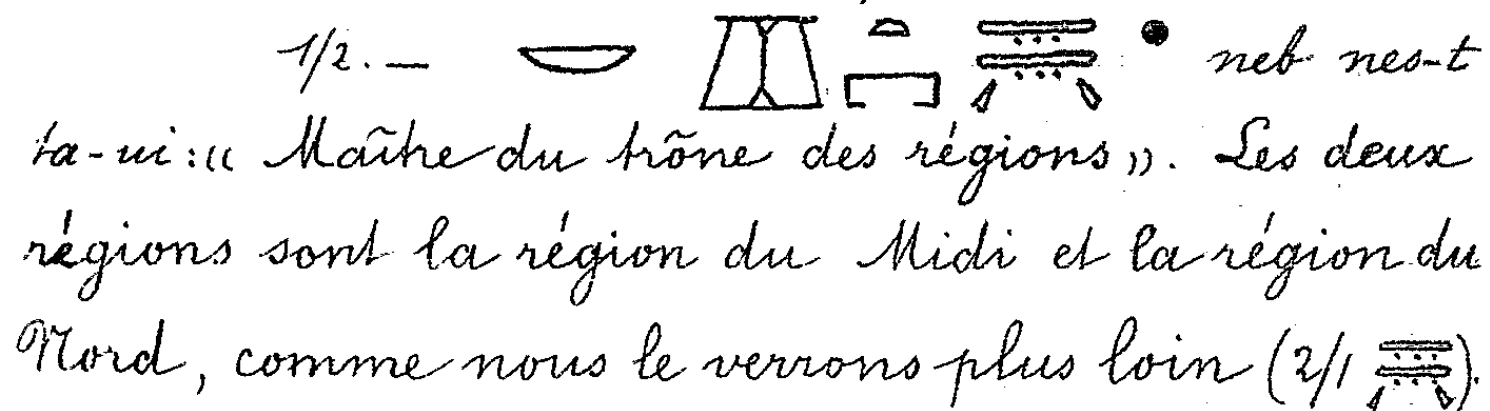 1/2. — 𓎟 𓎼 𓏏 𓉐 𓇿𓇿 • neb nes-t
ta-ui : « Maître du trône des régions ». Les deux
régions sont la région du Midi et la région du
Nord, comme nous le verrons plus loin (2/1 𓇿𓇿).